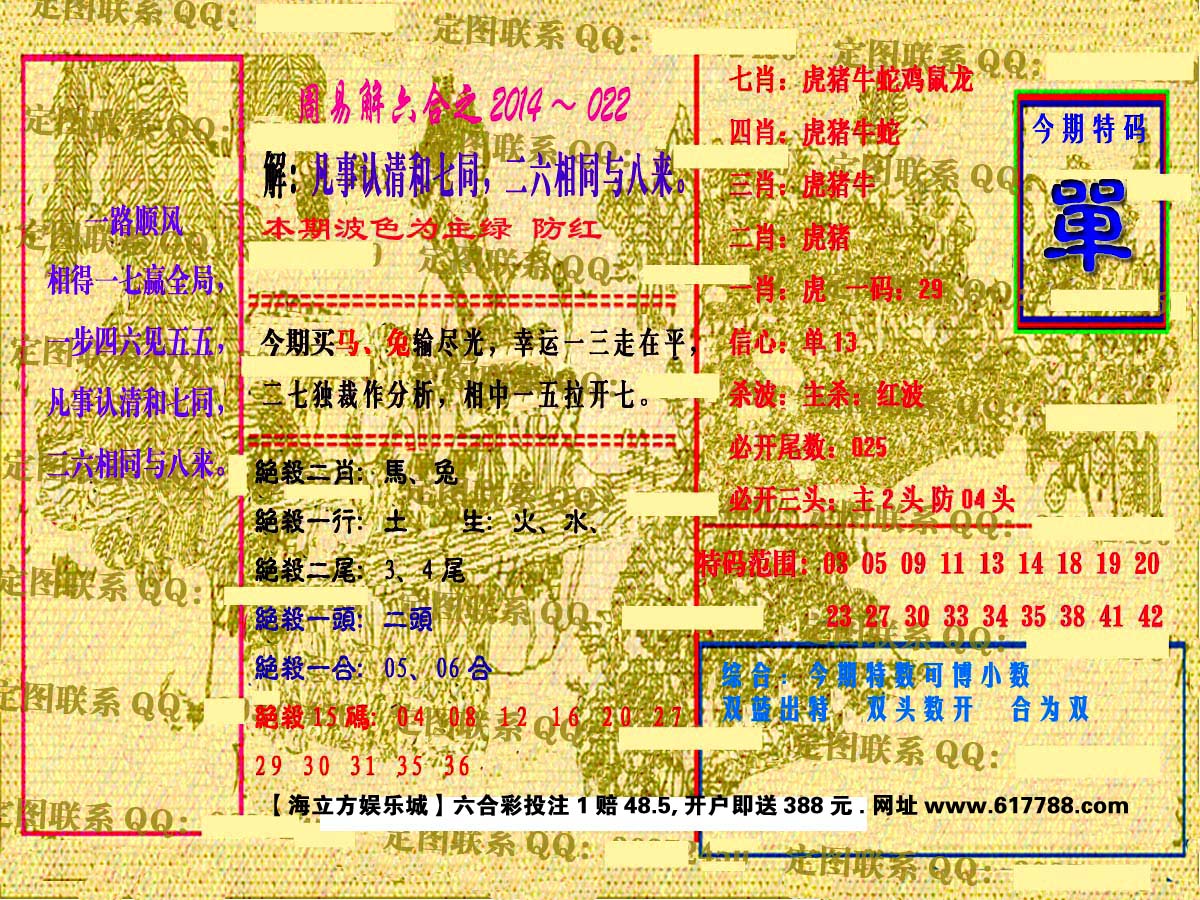 一路顺风
相得一七赢全局，
一步四六见五五，
凡事认清和七同，
二六相同与八来。
周易解六合之 2014～022
解：凡事认清和七同，二六相同与八来。
本期波色为主绿 防红
今期买马、兔输尽光，幸运一三走在平，
二七独裁作分析，相中一五拉开七。
絕殺二肖：馬、兔
絕殺一行：土 生：火、水、
絕殺二尾：3、4尾
絕殺一頭：二頭
絕殺一合：05、06合
絕殺15碼：04 08 12 16 20 27
29 30 31 35 36
七肖：虎猪牛蛇鸡鼠龙
四肖：虎猪牛蛇
三肖：虎猪牛
二肖：虎猪
一肖：虎 一码：29
信心：单13
杀波：主杀：红波
必开尾数：025
必开三头：主2头防04头
今期特码
單
特码范围：03 05 09 11 13 14 18 19 20
23 27 30 33 34 35 38 41 42
综合：今期特数可博小数
双蓝出特 双头数开 合为双
【海立方娱乐城】六合彩投注1赔48.5,开户即送388元.网址www.617788.com
定图联系QQ：
定图联系QQ：
定图联系QQ：
定图联系QQ：
定图联系QQ：
定图联系QQ：
定图联系QQ：
定图联系QQ：
定图联系QQ：